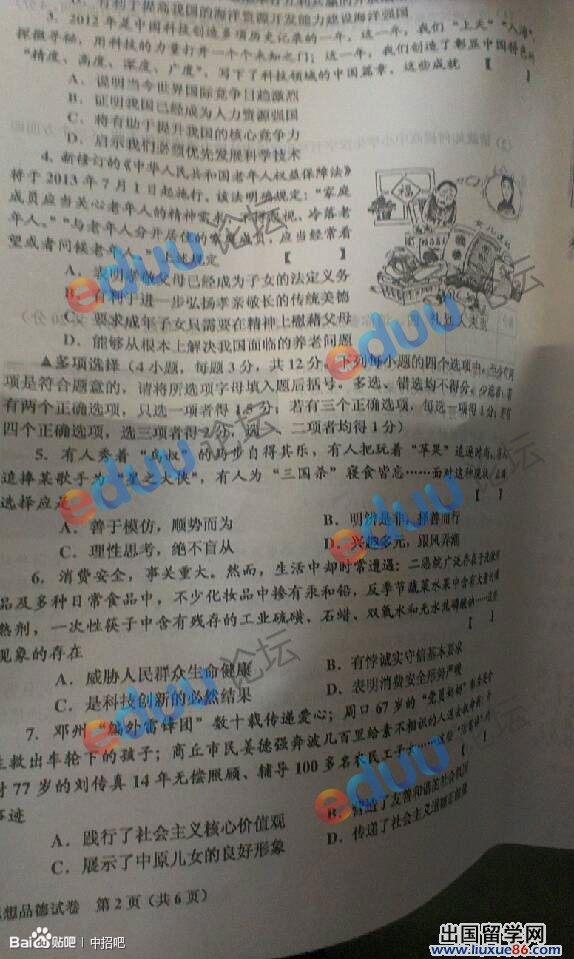 有利于提高我国的海洋资源开发能力建设海洋强国
3. 2012年是中国科技创造多项历史记录的一年，这一年，我们“上天”“入海”，
探微寻秘，用科技的力量打开一个个未知之门；这一年，我们创造了彰显中国特色的
“精度、高度、深度、广度”，写下了科技领域的中国篇章。这些成就 【 】
A．说明当今世界国际竞争日趋激烈
B．证明我国已经成为人力资源强国
C．将有助于提升我国的核心竞争力
D．启示我们必须优先发展科学技术
4. 新修订的《中华人民共和国老年人权益保障法》
将于2013年7月1日起施行。该法明确规定：“家庭
成员应当关心老年人的精神需求，不得忽视、冷落老
年人。”“与老年人分开居住的家庭成员，应当经常看
望或者问候老年人。”上述规定 【 】
A．表明孝敬父母已经成为子女的法定义务
B．有利于进一步弘扬孝亲敬长的传统美德
C．要求成年子女只需要在精神上慰藉父母
D．能够从根本上解决我国面临的养老问题
▲多项选择（4小题，每题3分，共12分。下列每小题的四个选项中，至少有两
项是符合题意的，请将所选项字母填入题后括号。多选、错选均不得分。少选者，若
有两个正确选项，只选一项者得1.5分；若有三个正确选项，每选一项得1分；若有
四个正确选项，选三项者得2分，选 二项者均得1分）
5. 有人秀着“鸟叔”的舞步自得其乐，有人把玩着“苹果”追逐时尚，有人
追捧某歌手为“星之大侠”，有人为“三国杀”寝食皆忘……面对这种现状，正确
选择应是 【 】
A．善于模仿，顺势而为
B．明辨是非，择善而行
C．理性思考，绝不盲从
D．兴趣多元，跟风弄潮
6. 消费安全，事关重大。然而，生活中却时常遭遇：二恶烷广泛存在于洗涤用
品及多种日常食品中，不少化妆品中掺有汞和铅，反季节蔬菜水果中含有大量
熟剂，一次性筷子中含有残存的工业硫磺、石蜡、双氧水和无水硫磷酸钠……这些
现象的存在 【 】
A．威胁人民群众生命健康
B．有悖诚实守信基本要求
C．是科技创新的必然结果
D．表明消费安全形势严峻
7. 邓州“编外雷锋团”数十载传递爱心；周口67岁的
生救出车轮下的孩子；商丘市民姜德强奔波几百里给素不相识的人送
村77岁的刘传真14年无偿照顾、辅导100多名农民工子女……这些
事迹
A．践行了社会主义核心价值观
B．营造了友善和谐的社会氛围
C．展示了中原儿女的良好形象
D．传递了社会主义道德正能量
思想品德试卷 第2页（共6页）
eduu论坛
eduu论坛
eduu论坛
eduu论坛
Bai贴吧 | 中招吧
出国留学网
www.liuxue86.com